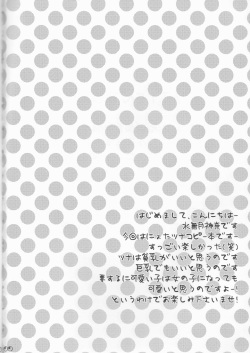 はじめまして、こんにちはー
水無月神奈です
今回はにょたツナコピー本です
すっごい楽しかった(笑)
ツナは貧乳がいいと思うのです
巨乳でもいいと思うのです
要するに可愛い子は女の子になっても
可愛いと思うのですよー
というわけでお楽しみ下さいませ!